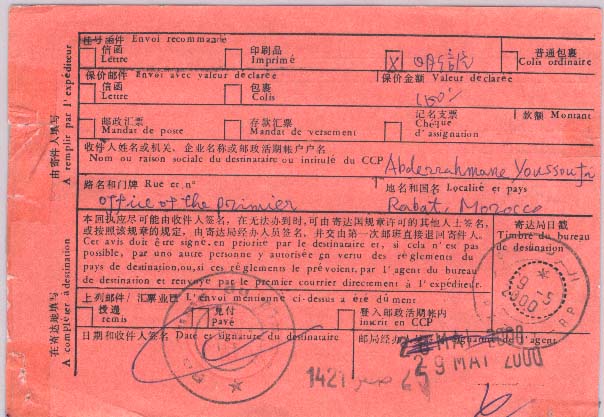 挂号函件 Envoi recommande
信函 Lettre 印刷品 Imprimé X 明信片 普通包裹 Colis ordinaire
保价邮件 Envoi avec valeur déclarée 保价金额 Valeur declarée
信函 Lettre 包裹 Colis
邮政汇票 Mandat de poste 存款汇票 Mandat de versement 记名支票 Chèque d'assignation 款额 Montant
收件人姓名或机关、企业名称或邮政活期帐户户名
Nom ou raison sociale du destinataire ou intitulé du CCP Abderrahmane Youssoufi
路名和门牌 Rue et n° 地名和国名 Localité et pays
office of the primier Rabat, Morocco
本回执应尽可能由收件人签名，在无法办到时，可由寄达国规章许可的其他人士签名，
或按照该规章的规定，由寄达局经办人员签名，并交由第一次邮班直接退回寄件人。
Cet avis doit être signé, en priorité par le destinataire et, si cela n'est pas
possible, par une autre personne y autorisée en vertu des règlements du
pays de destination, ou, si ces règlements le prévoient, par l'agent du bureau
de destination et renvoyé par le premier courrier directement à l'expéditeur.
寄达局日戳
Timbre du bureau
de destination
上列邮件/汇票业已 L'envoi mentionné ci-dessus a été dûment
投递 remis 兑付 payé 登入邮政活期帐内 inscrit en CCP
日期和收件人签名 Date et signature du destinataire 邮局经办人 de l'agent
MAI 2000
29 MAI 2000
1421
由寄件人填写
A remplir par l'expéditeur
在寄达地填写
A compléter à destination